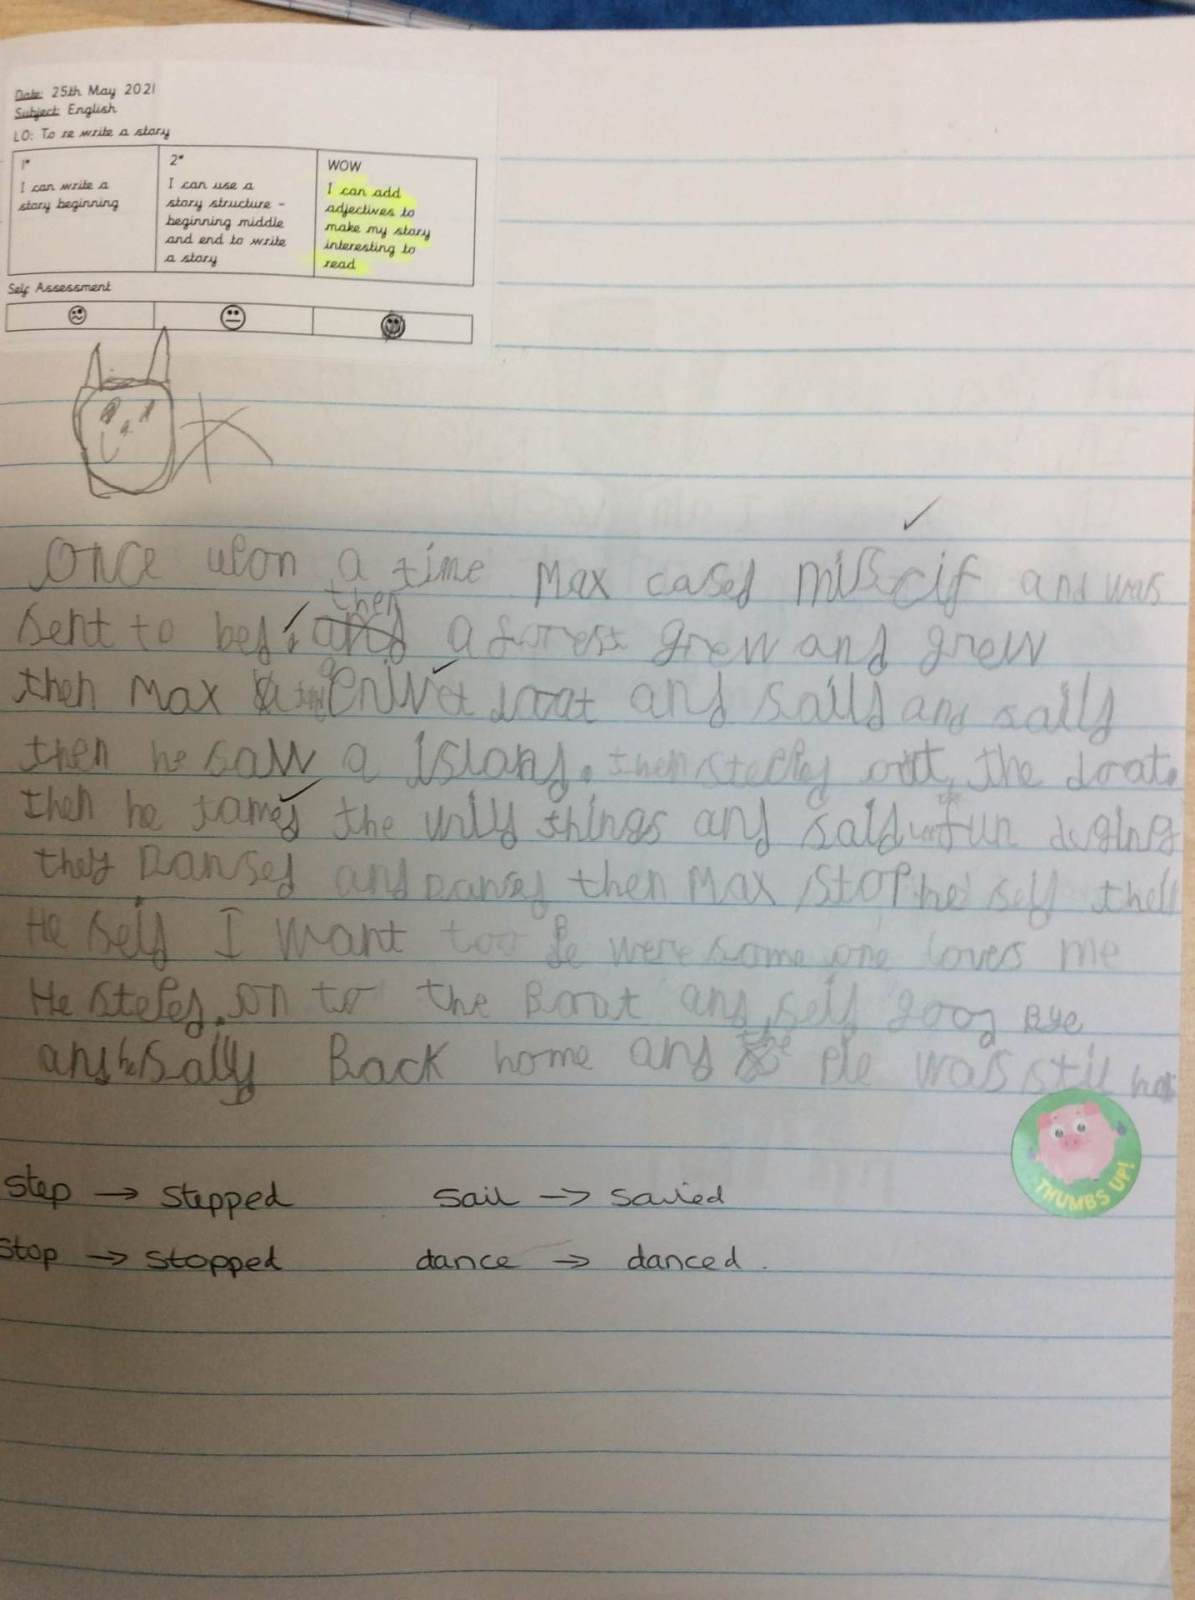 Date: 25th May 2021
Subject: English
LO: To re write a story
1*
I can write a
story beginning
2*
I can use a
story structure -
beginning middle
and end to write
a story
WOW
I can add
adjectives to
make my story
interesting to
read
Self Assessment
Once upon a time Max cased miscif and was
sent to bed. then a forrest grew and grew
then Max a boat and saild and saild
then he saw a island. then steped out the boat.
then he tamed the wild things and said fun
they Dansed and Dansed then Max stop he self then
He self I want too be were some one loves me
He steped on to the Boat and self good Bye
and he sally Back home and the pie was still hot
step → stepped sail → sailed
stop → stopped dance → danced.
THUMBS UP!